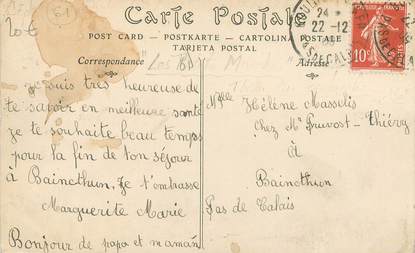 Carte Postale
POST CARD - POSTKARTE - CARTOLINA POSTALE
TARJETA POSTAL
Correspondance
Adresse
Je suis très heureuse de
te savoir en meilleure santé
je te souhaite beau temps
pour la fin de ton séjour
à Bainethun. Je t'embrasse
Marguerite Marie
Bonjour de papa et maman
Melle Hélène Masselis
Chez Mr Pruvost-Thiéry
à
Bainethun
Pas de Calais
22-12
10c